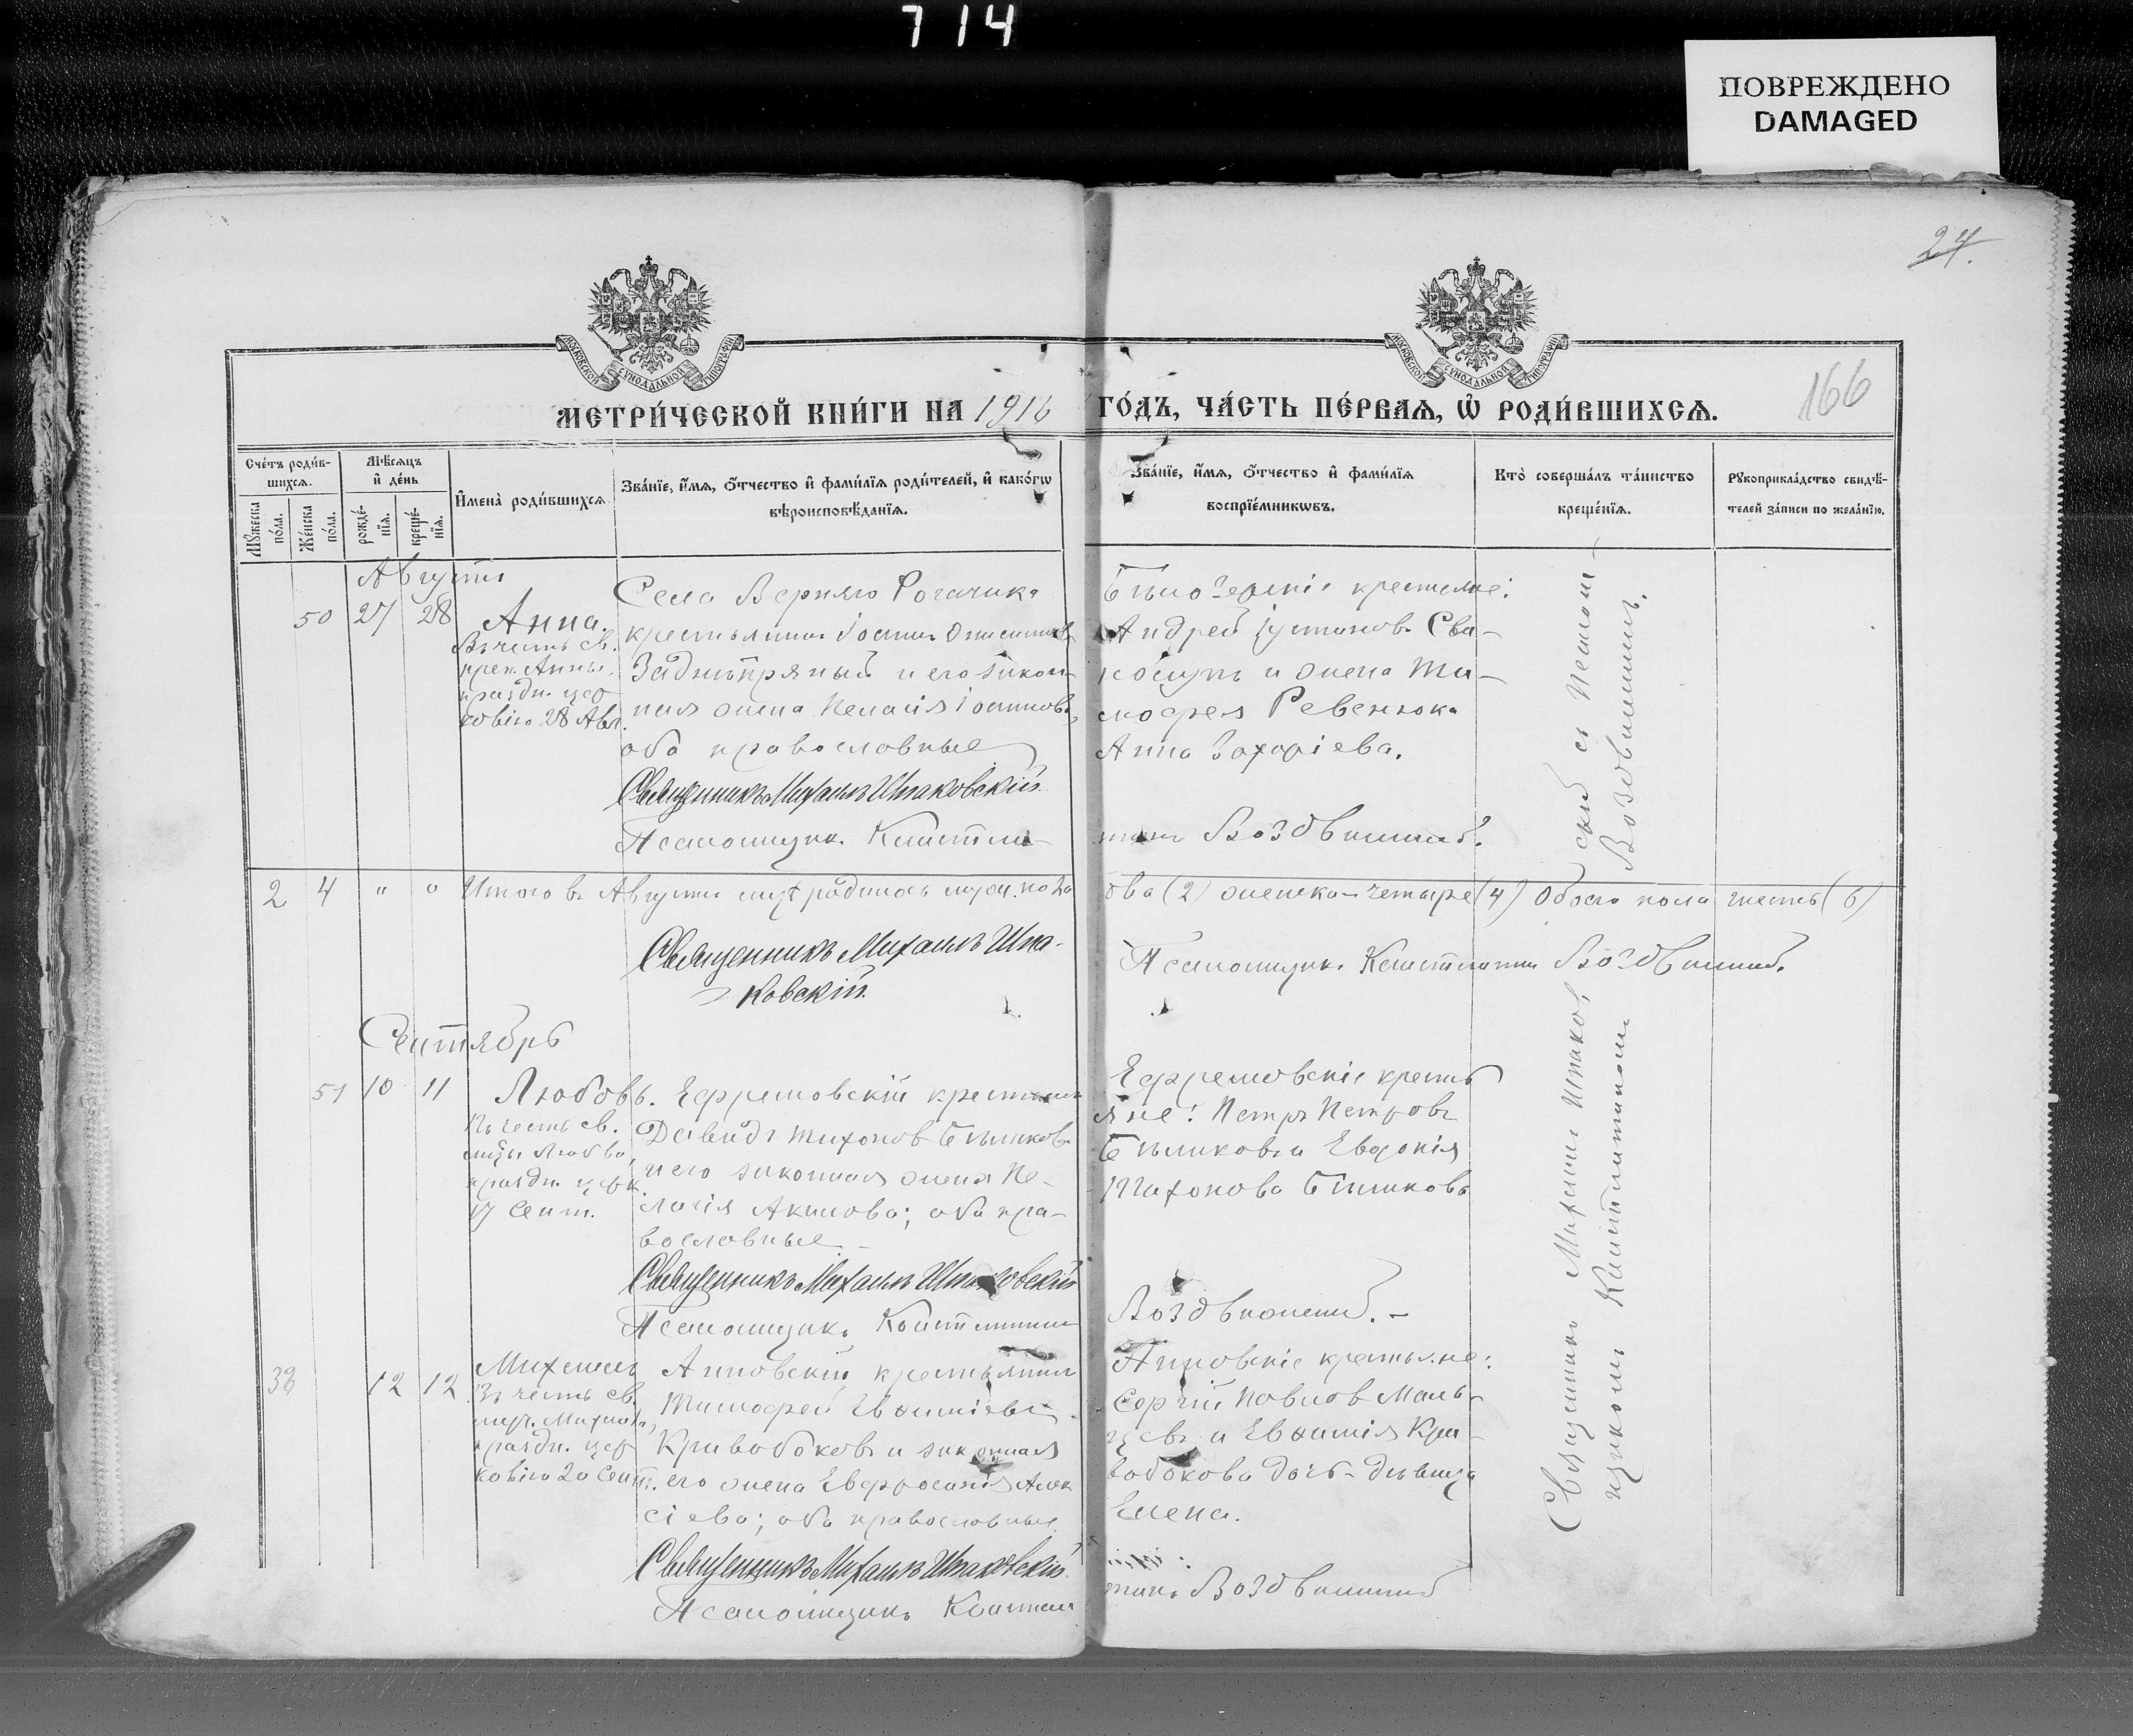 714
ПОВРЕЖДЕНО
DAMAGED
24.
166
МОСКОВСКОЙ СѴНОДАЛЬНОЙ ТИПОГРАФІИ
МОСКОВСКОЙ СѴНОДАЛЬНОЙ ТИПОГРАФІИ
МЕТРИ́ЧЕСКОЙ КНИ́ГИ НА 1916 ГО́ДЪ, ЧА́СТЬ ПЕ́РВАѦ, Ѡ҆ РОДИ́ВШИХСѦ.
Сче́тъ роди́в-
шихсѧ.
Мꙋ́жеска по́ла.
Же́нска по́ла.
Мѣ́сѧцъ
и҆ де́нь
рожде́-
нїѧ.
креще́-
нїѧ.
И҆мена̀ роди́вшихсѧ.
Зва́нїе, и҆́мѧ, ѻ҆́тчество и҆ фами́лїѧ роди́телей, и҆ како́гѡ
вѣроисповѣ́данїѧ.
Зва́нїе, и҆́мѧ, ѻ҆́тчество и҆ фами́лїѧ
воспрїе́мникѡвъ.
Кто̀ соверша́лъ та́инство
креще́нїѧ.
Рꙋкоприкла́дство свидѣ́-
телей за́писи по жела́нїю.
Августъ
50 27 28 Анна.
Въ честь св.
прав. Анны,
праздн. цер
ковію 28 Авг.
Села Верхняго Рогачика
крестьянинъ Іоаннъ
Заднѣпряный и его закон-
ная жена Пелагія Іоаннова,
оба православные
Священникъ Михаилъ Шпаковскій.
Псаломщикъ Константи-
Бѣлозерскіе крестьяне:
Андрей Іустиновъ Сви-
и жена Ти-
мофея Ревенюка
Анна Захаріева.
тинъ Воздвиженскій.
2 4 " " Итого въ Августѣ мѣс. родилось муж. пола
два (2) женска — четыре (4) Обоего пола шесть (6)
Священникъ Михаилъ Шпа-
ковскій.
Псаломщикъ Константинъ Воздвиженскій.
Сентябрь
51 10 11 Любовь.
Въ честь св.
мцы Любви,
праздн. церк.
17 Сент.
Ефремовскій крестьянинъ
Давидъ Тихоновъ Бѣликовъ
и его законная жена Пе-
лагія Акимова; оба пра-
вославные
Священникъ Михаилъ Шпаковскій
Псаломщикъ Константинъ
Ефремовскіе кресть
яне: Петръ Петровъ
Бѣликовъ и Евдокія
Тихонова Бѣликова
Воздвиженскій. —
38 12 12 Михаилъ
Въ честь св.
муч. Михаила,
праздн. цер
ковію 20 Сент.
Анновскій крестьянинъ
Тимофей Евфиміевъ
Кривобоковъ и законная
его жена Евфросинія Алек
сіева; оба православные.
Священникъ Михаилъ Шпаковскій.
Псаломщикъ Констан
Анновскіе крестьяне:
Сергій Павловъ Маль-
цевъ и Евфимія Кри-
вобокова дочь-дѣвица
Елена.
тинъ Воздвиженскій
Священникъ Михаилъ Шпаков
скій съ псалом
щикомъ Константиномъ
Воздвиженскимъ.